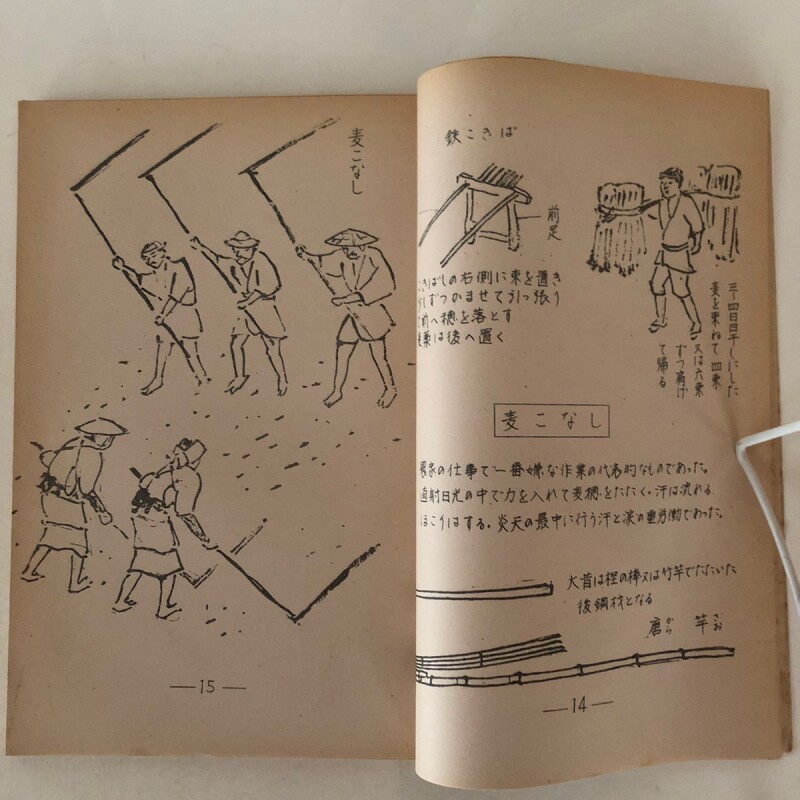 鉄こきば
前足
三〜四日日干しにした
麦を束ねて四束
又は六束
ずつ肩け
て帰る
こきばしの右側に束を置き
しずつかませて引っ張り
前へ穂を落とす
藁は後へ置く
麦こなし
農家の仕事で一番嫌な作業の代表的なものであった。
直射日光の中で力を入れて麦穂をたたく。汗は流れる
ほこりはする。炎天の最中に行う汗と涙の重労働であった。
大昔は樫の棒又は竹竿でたたいた
後鋼材となる
唐竿
から さお
—14—
麦こなし
—15—